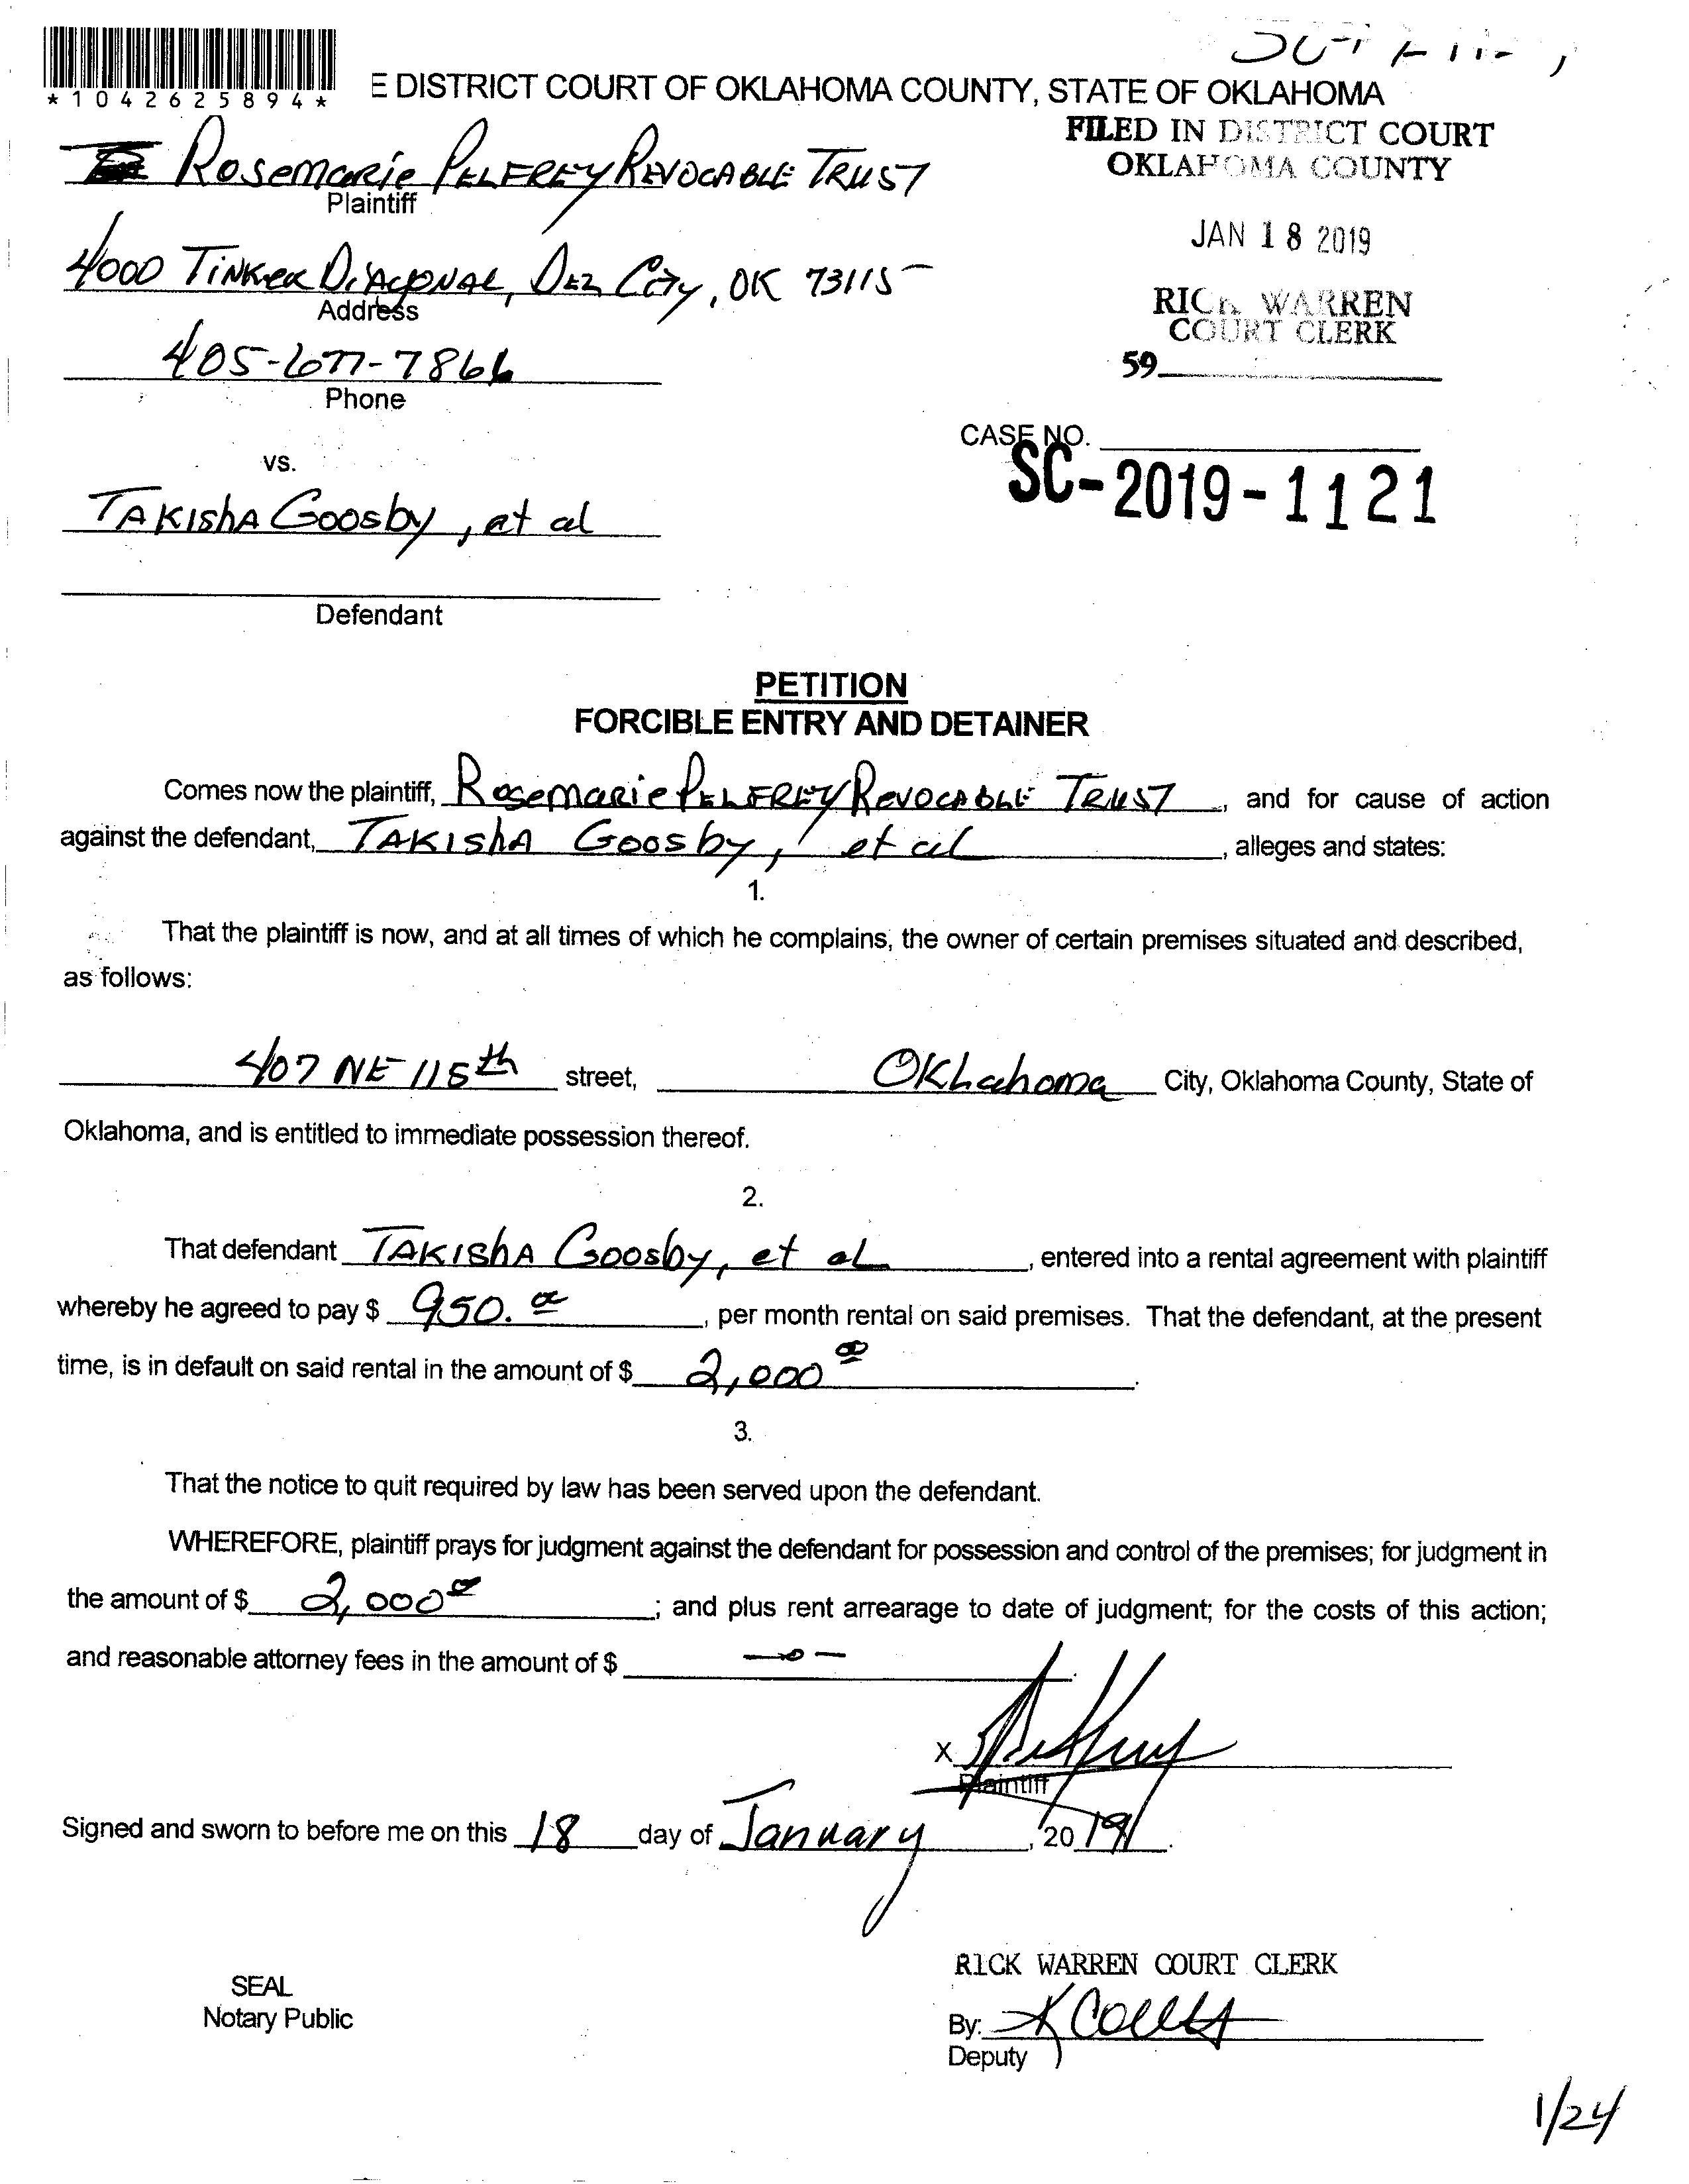 *1042625894*
E DISTRICT COURT OF OKLAHOMA COUNTY, STATE OF OKLAHOMA
FILED IN DISTRICT COURT
OKLAHOMA COUNTY
Rosemarie PELFREY REVOCABLE TRUST
Plaintiff
JAN 18 2019
4000 TINKER DIAGONAL, DEL City, OK 73115
Address
RICK WARREN
COURT CLERK
405-677-7866
59
Phone
CASE NO.
SC-2019-1121
vs.
TAKISHA Goosby, et al
Defendant
PETITION
FORCIBLE ENTRY AND DETAINER
Comes now the plaintiff, Rosemarie PELFREY REVOCABLE TRUST, and for cause of action
against the defendant, TAKISHA Goosby, et al, alleges and states:
1.
That the plaintiff is now, and at all times of which he complains, the owner of certain premises situated and described,
as follows:
407 NE 115th street, Oklahoma City, Oklahoma County, State of
Oklahoma, and is entitled to immediate possession thereof.
2.
That defendant TAKISHA Goosby, et al, entered into a rental agreement with plaintiff
whereby he agreed to pay $ 950.00, per month rental on said premises. That the defendant, at the present
time, is in default on said rental in the amount of $ 2,000 00.
3.
That the notice to quit required by law has been served upon the defendant.
WHEREFORE, plaintiff prays for judgment against the defendant for possession and control of the premises; for judgment in
the amount of $ 2,000 00; and plus rent arrearage to date of judgment; for the costs of this action;
and reasonable attorney fees in the amount of $ -0-.
X
Plaintiff
Signed and sworn to before me on this 18 day of January, 2019.
RICK WARREN COURT CLERK
SEAL
Notary Public
By:
Deputy
1/24